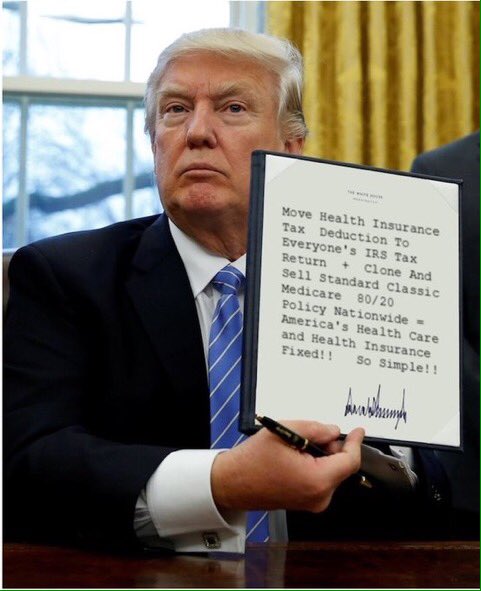 THE WHITE HOUSE
WASHINGTON
Move Health Insurance
Tax Deduction To
Everyone's IRS Tax
Return + Clone And
Sell Standard Classic
Medicare 80/20
Policy Nationwide =
America's Health Care
and Health Insurance
Fixed!! So Simple!!